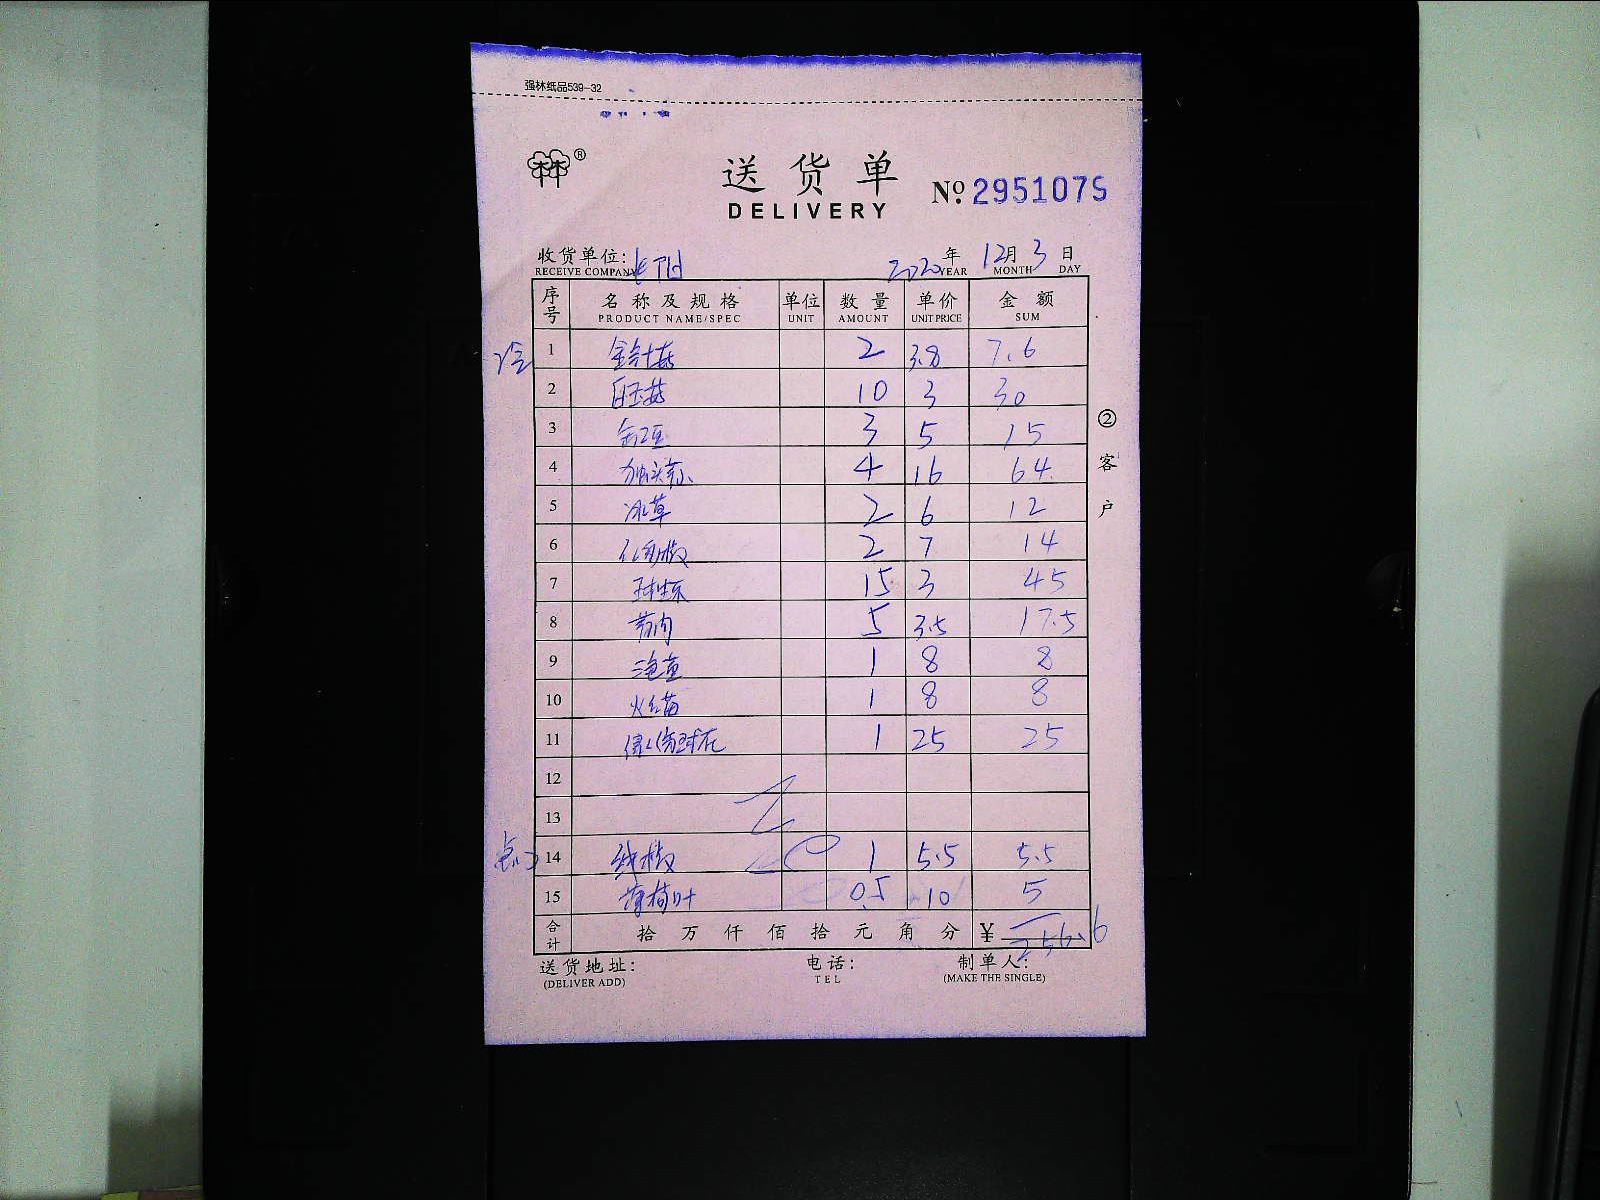 强林纸品539-32
林林®
送货单
DELIVERY
№ 2951075
收货单位:
RECEIVE COMPANY
2020 年 12 月 3 日
YEAR MONTH DAY
序号 名称及规格 单位 数量 单价 金额
PRODUCT NAME/SPEC UNIT AMOUNT UNIT PRICE SUM
1 金针菇 2 3.8 7.6
2 白玉菇 10 3 30
3 2 3 5 15
4 独头蒜 4 16 64
5 冰草 2 6 12
6 2 7 14
7 15 3 45
8 5 3.5 17.5
9 1 8 8
10 火红苗 1 8 8
11 1 25 25
12
13
14 线椒 1 5.5 5.5
15 薄荷叶 0.5 10 5
合计 拾 万 仟 佰 拾 元 角 分 ¥ 256.6
送货地址: 电话: 制单人:
(DELIVER ADD) TEL (MAKE THE SINGLE)
②客户